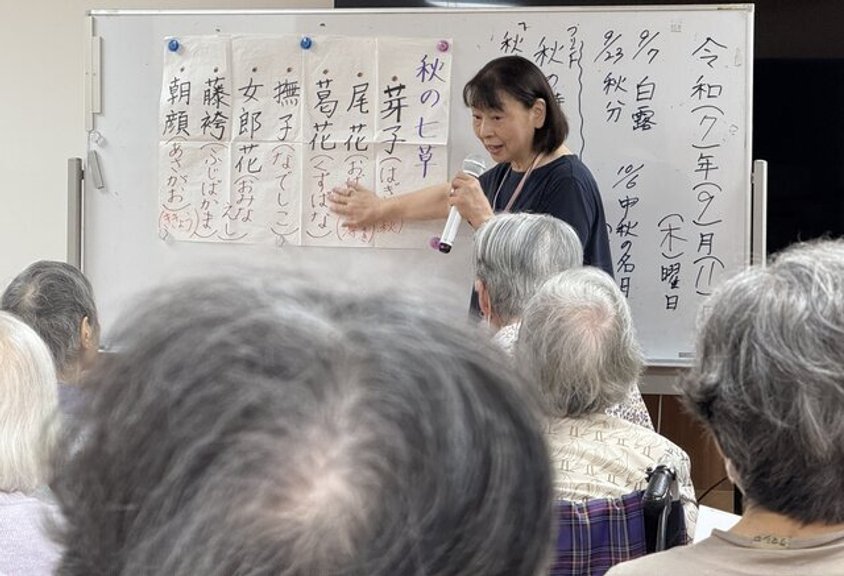 令和(7)年(9)月(11)
(木)曜日
9/7 白露
9/23 秋分
10/6 中秋の名月
秋の
秋
秋の七草
芽子(はぎ
尾花(おば
葛花(くずばな)
撫子(なでしこ)
女郎花(おみなえし)
藤袴(ふじばかま)
朝顔(あさがお)
(ききょう)